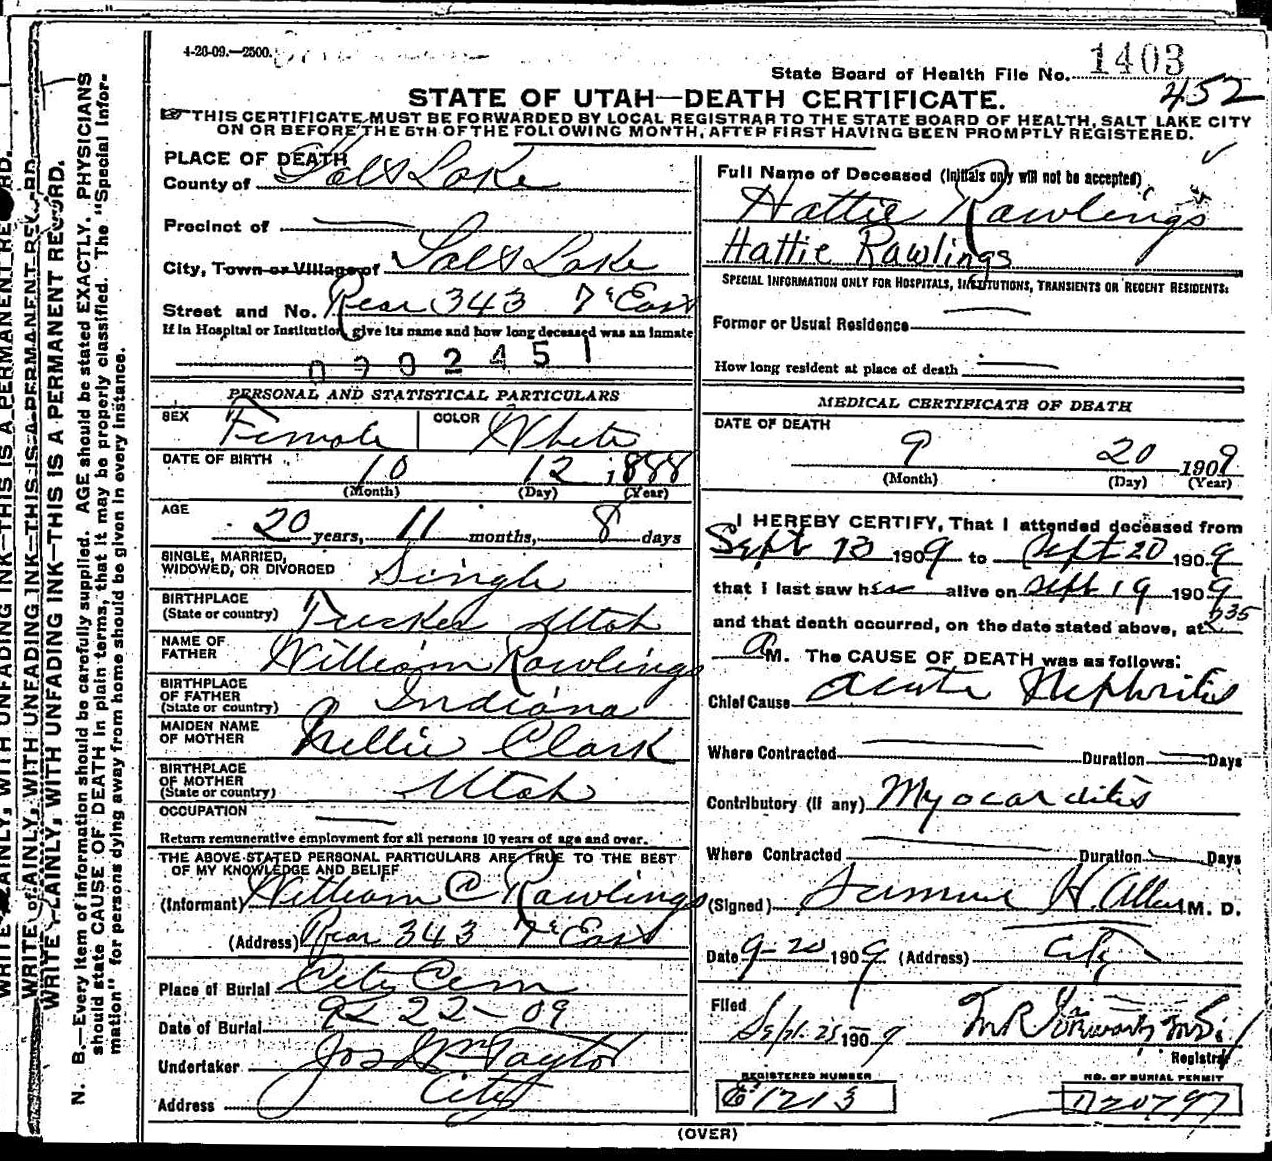 4-26-09.—2500.
State Board of Health File No. 1403
452
STATE OF UTAH—DEATH CERTIFICATE.
☞THIS CERTIFICATE MUST BE FORWARDED BY LOCAL REGISTRAR TO THE STATE BOARD OF HEALTH, SALT LAKE CITY
ON OR BEFORE THE 5TH OF THE FOLLOWING MONTH, AFTER FIRST HAVING BEEN PROMPTLY REGISTERED.
PLACE OF DEATH
County of Salt Lake
Precinct of
City, Town or Village of Salt Lake
Street and No. Rear 343 7th East
If in Hospital or Institution, give its name and how long deceased was an inmate
0902451
PERSONAL AND STATISTICAL PARTICULARS
SEX Female COLOR White
DATE OF BIRTH 10 12 1888
(Month) (Day) (Year)
AGE
20 years, 11 months, 8 days
SINGLE, MARRIED,
WIDOWED, OR DIVORCED Single
BIRTHPLACE
(State or country) Utah
NAME OF
FATHER William Rawlings
BIRTHPLACE
OF FATHER
(State or country) Indiana
MAIDEN NAME
OF MOTHER Nellie Clark
BIRTHPLACE
OF MOTHER
(State or country) Utah
OCCUPATION
Return remunerative employment for all persons 10 years of age and over.
THE ABOVE STATED PERSONAL PARTICULARS ARE TRUE TO THE BEST
OF MY KNOWLEDGE AND BELIEF
(Informant) William C Rawlings
(Address) Rear 343 7th East
Place of Burial City Cem
Date of Burial 9-22-09
Undertaker Jos Wm Taylor
Address City
Full Name of Deceased (Initials only will not be accepted)
Hattie Rawlings
Hattie Rawlings
SPECIAL INFORMATION ONLY FOR HOSPITALS, INSTITUTIONS, TRANSIENTS OR RECENT RESIDENTS:
Former or Usual Residence
How long resident at place of death
MEDICAL CERTIFICATE OF DEATH
DATE OF DEATH
9 20 1909
(Month) (Day) (Year)
I HEREBY CERTIFY, That I attended deceased from
Sept 13 1909 to Sept 20 1909
that I last saw her alive on Sept 19 1909
and that death occurred, on the date stated above, at 635
A M. The CAUSE OF DEATH was as follows:
Chief Cause Acute Nephritis
Where Contracted Duration Days
Contributory (if any) Myocarditis
Where Contracted Duration Days
(Signed) Samuel H. Allen M. D.
Date 9-20 1909 (Address) City
Filed
Sept. 25 1909
Registrar
REGISTERED NUMBER NO. OF BURIAL PERMIT
C 1213 D20797
(OVER)
WRITE PLAINLY, WITH UNFADING INK—THIS IS A PERMANENT RECORD.
N. B.—Every item of information should be carefully supplied. AGE should be stated EXACTLY. PHYSICIANS
should state CAUSE OF DEATH in plain terms, that it may be properly classified. The "Special Infor-
mation" for persons dying away from home should be given in every instance.